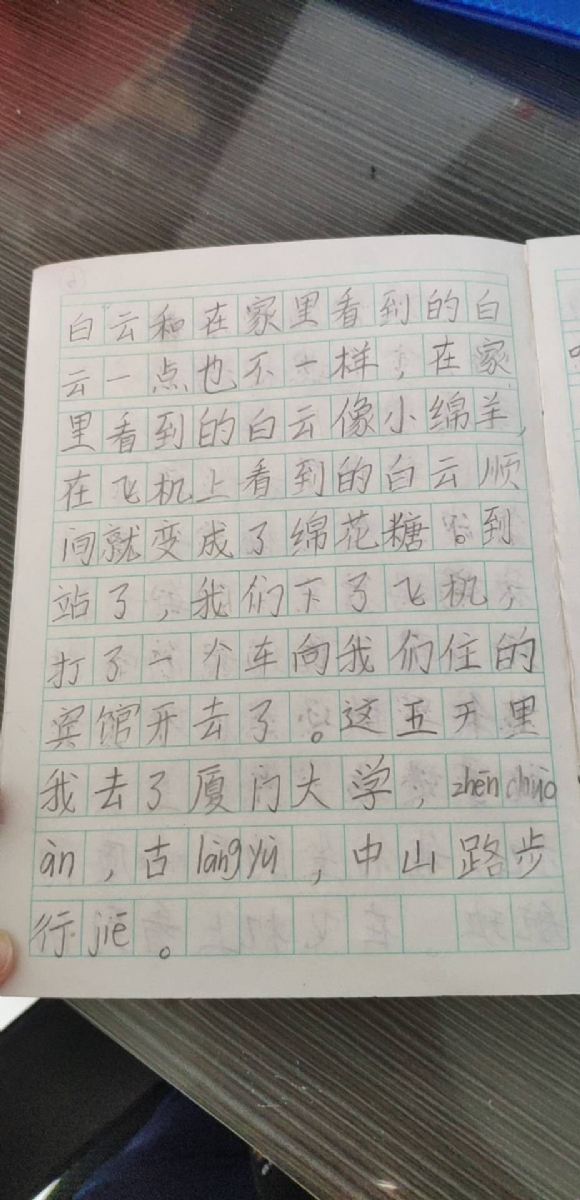 白云和在家里看到的白
云一点也不一样，在家
里看到的白云像小绵羊，
在飞机上看到的白云顺
间就变成了绵花糖。到
站了，我们下了飞机，
打了一个车向我们住的
宾馆开去了。这五天里
我去了厦门大学，zhēn chuò
àn，古làng yǔ，中山路步
行jiē。